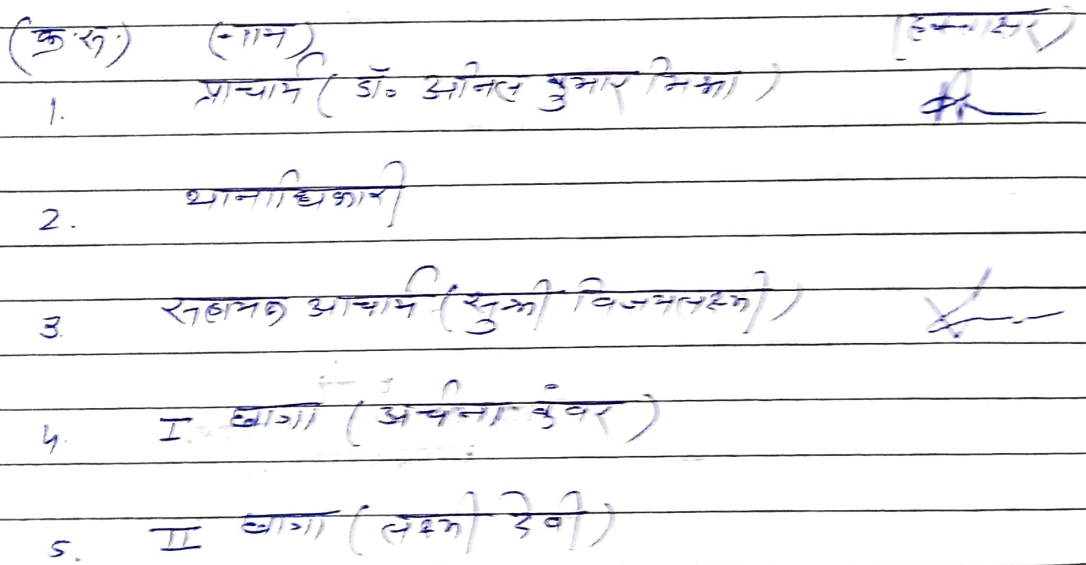 (क्र.सं.) (नाम) (हस्ताक्षर)
1. प्राचार्य ( डॉ० अनिल कुमार मिश्रा )
2. थानाधिकारी
3. सहायक आचार्य ( सुश्री विजयलक्ष्मी )
4. I छात्रा ( अर्चना कुंवर )
5. II छात्रा ( लक्ष्मी देवी )